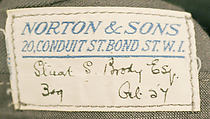 NORTON & SONS
20, CONDUIT ST. BOND ST. W.1.
Stuart S. Brody Esq.